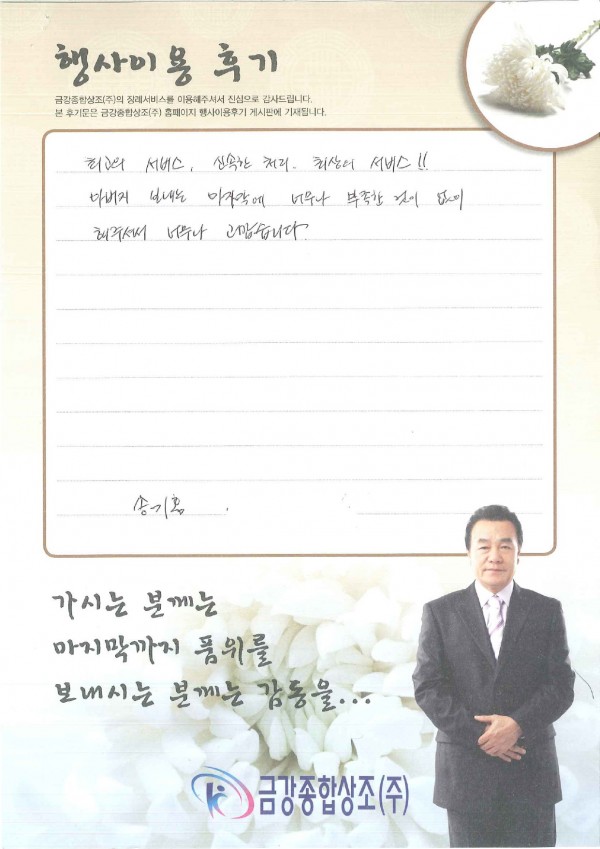 행사이용 후기
금강종합상조(주)의 장례서비스를 이용해주셔서 진심으로 감사드립니다.
본 후기문은 금강종합상조(주) 홈페이지 행사이용후기 게시판에 기재됩니다.
최고의 서비스, 신속한 처리. 최상의 서비스!!
아버지 보내는 마지막에 너무나 부족한 것이 없이
해주셔서 너무나 고맙습니다.
송기홍
가시는 분께는
마지막까지 품위를
보내시는 분께는 감동을...
금강종합상조(주)